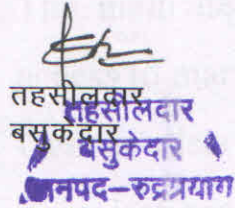 तहसीलदार
बसुकेदार
तहसीलदार
बसुकेदार
जनपद–रुद्रप्रयाग